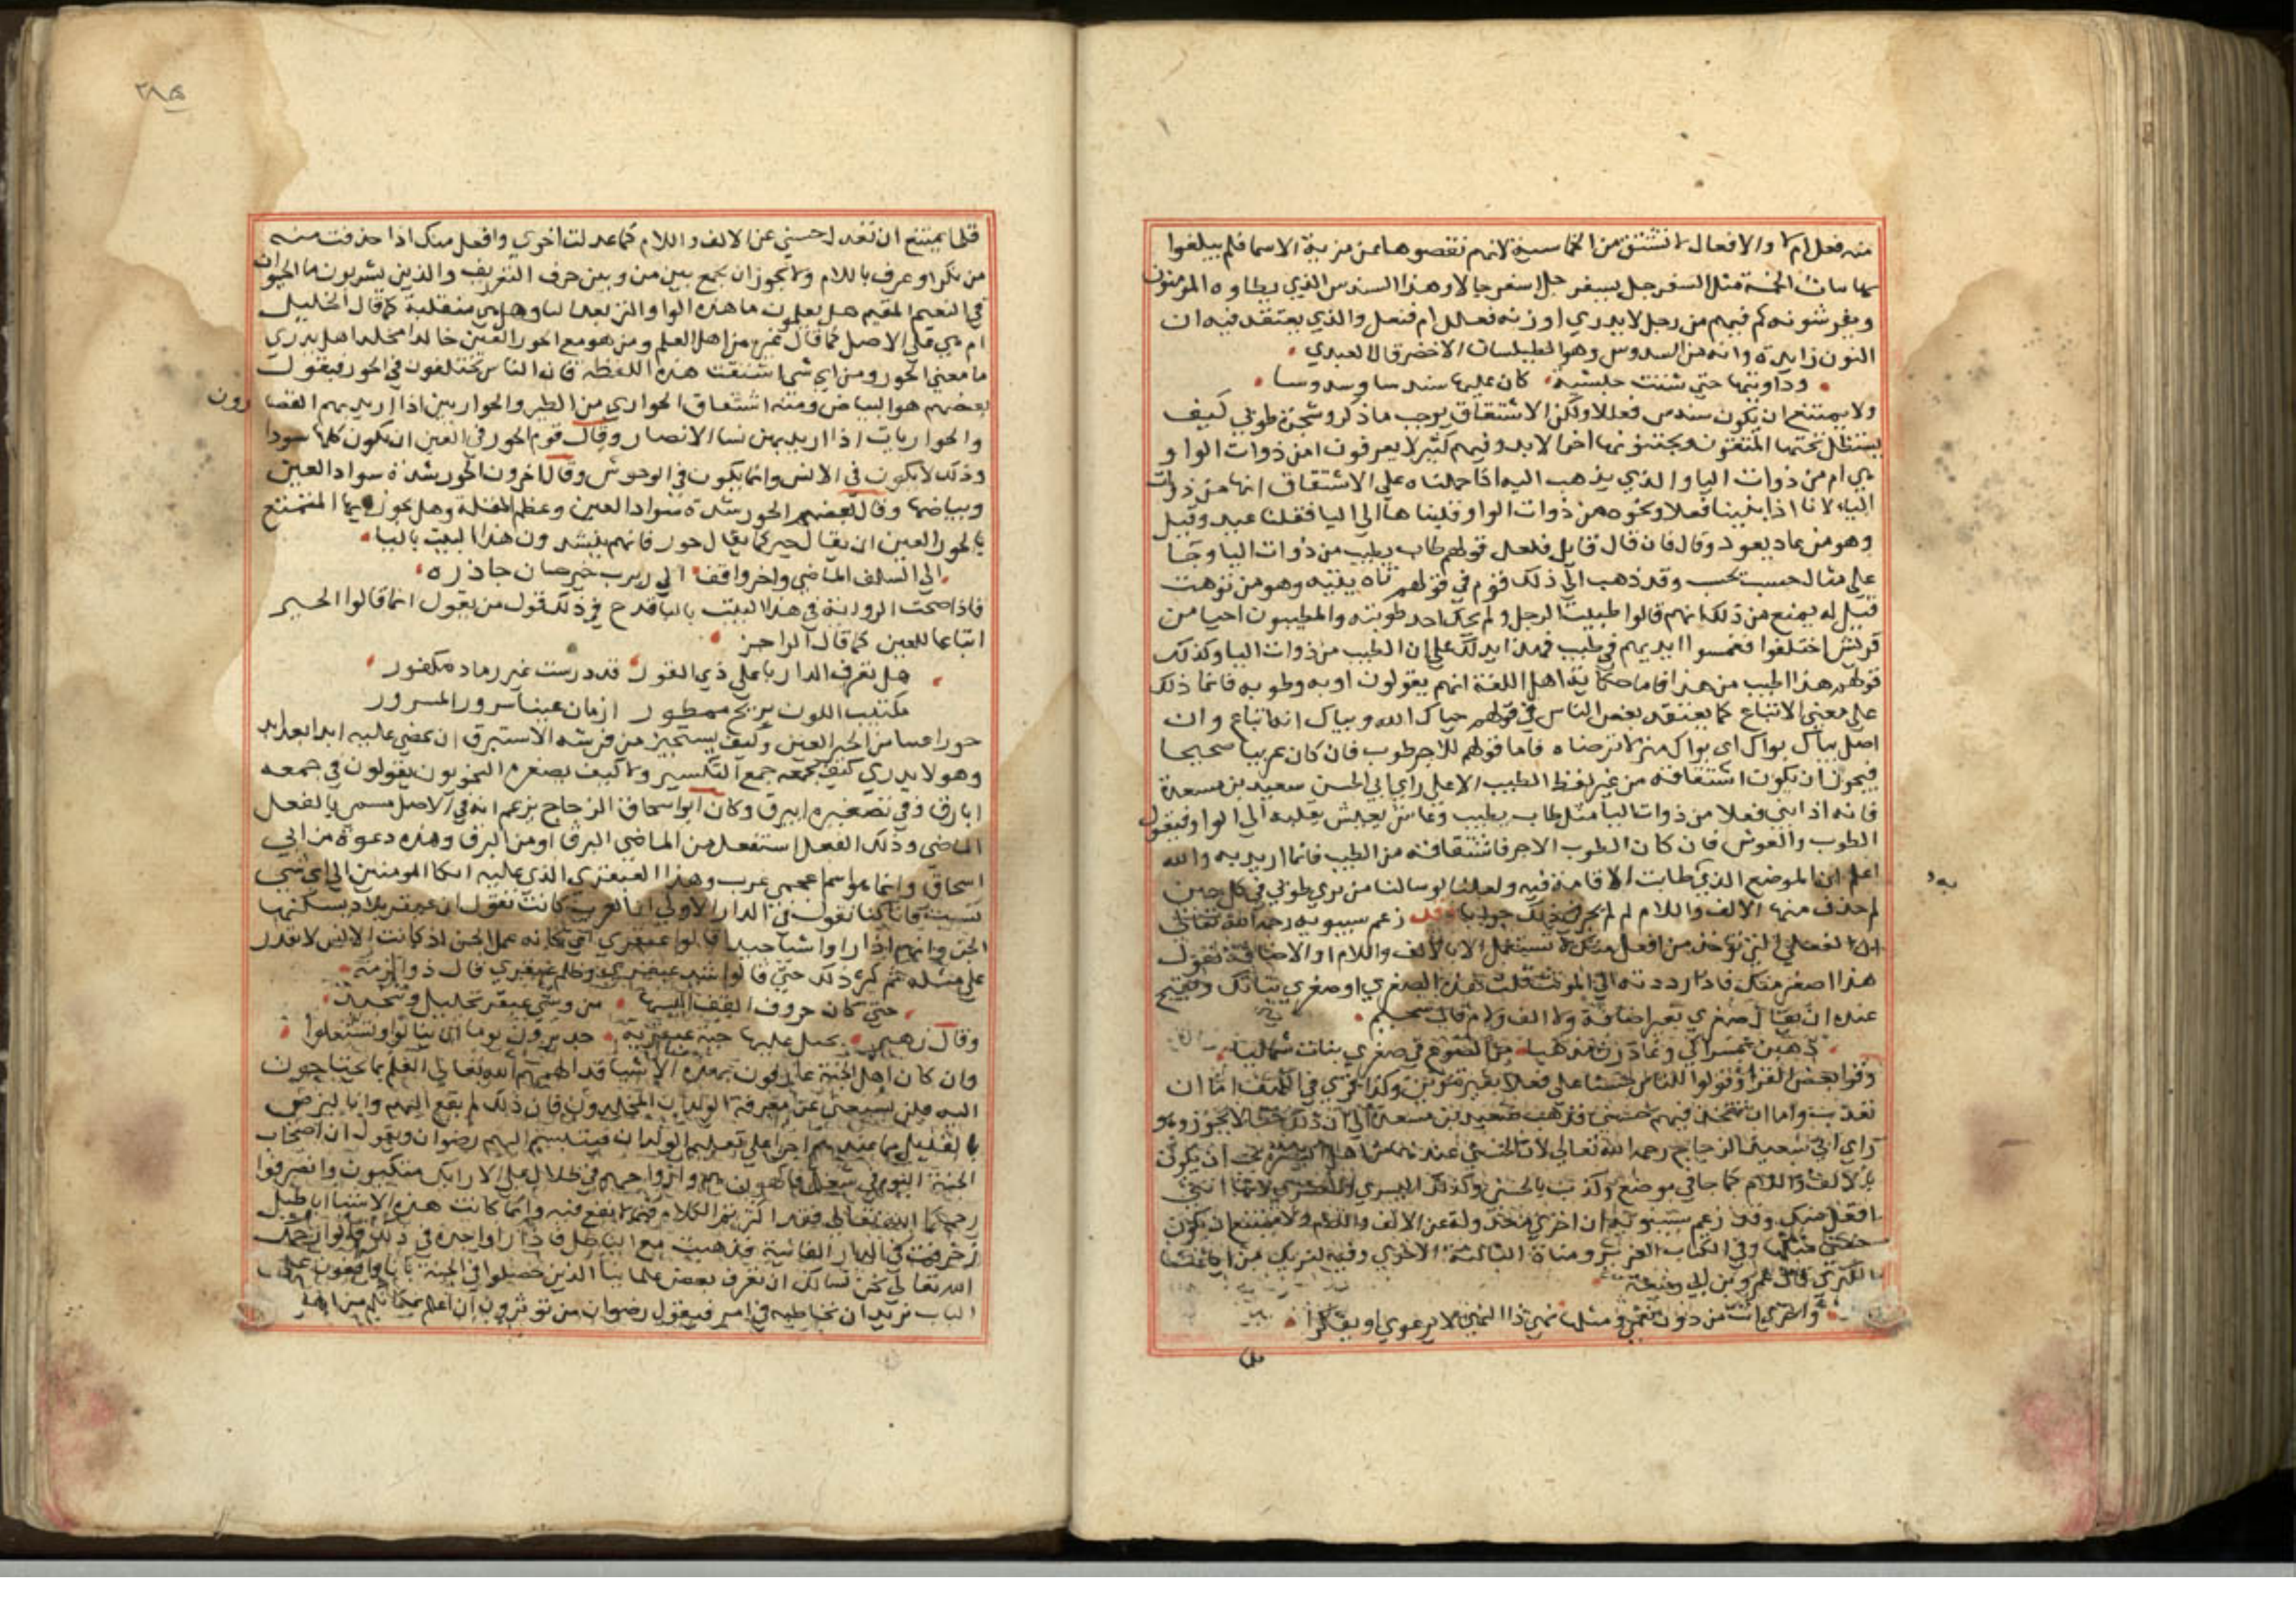 منه فعل ام لا والافعال لا تشتق من الخماسية لانهم نقصوها عن مزية الاسما فلم يبلغوا
بها بنات الخمسة مثل اسفرجل يسفرجل اسفرجالا وهذا السندس الذي يطاوه المومنون
ويفرشونه كم فيهم من رجل لا يدري اوزنه فعلل ام فنعل والذي يعتقد فيه ان
النون زايدة وانه من السدوس وهو الطيلسان الاخضر قال العبدي
وداويتها حتي شتت حبشية كان عليها سندسا وسدوسا
ولا يمتنع ان يكون سندس فعللا ولكن الاشتقاق يوجب ما ذكر وشجرة طوبي كيف
يستظل تحتها المتقون ويجتنونها اخر الابد وفيهم كثير لا يعرفون امن ذوات الواو
هي ام من ذوات اليا والذي يذهب اليه اذا حملناه علي الاشتقاق انها من ذوات
اليا لانا اذا بنينا فعلا ونحوه من ذوات الواو قلبناها الي اليا فقلنا عيد وقيل
وهو من عاد يعود وقال فان قال قايل فلعل قولهم طاب يطيب من ذوات اليا وجا
علي مثال حسب يحسب وقد ذهب الي ذلك قوم في قولهم تاه يتيه وهو من توهت
قيل له يمنع من ذلك انهم قالوا طيبت الرجل ولم يحك احد طوبته والمطيبون احيا من
قريش احتلفوا فغمسوا ايديهم في طيب فهذا يدلك علي ان الطيب من ذوات اليا وكذلك
قولهم هذا اطيب من هذا فاما حكاية اهل اللغة انهم يقولون اوبة وطوبه فانما ذلك
علي معني الاتباع كما يعتقد بعض الناس في قولهم حياك الله وبياك انه اتباع وان
اصل بياك بواك اي بواك منزلا ترضاه فاما قولهم للاجر طوب فان كان عربيا صحيحا
فيجوز ان يكون اشتقاقه من غير لفظ الطيب الا علي راي ابي الحسن سعيد بن مسعدة
فانه اذا ابني فعلا من ذوات اليا مثل طاب يطيب وعاش يعيش يقلبه الي الواو فيقول
الطوب والعوش فان كان الطوب الاجر فاشتقاقه من الطيب فانما اريد به والله
اعلم ان الموضع الذي طابت الاقامة فيه ولعلنا لو سالنا من يري طوبي في كل حين
لم حذف منها الالف واللام لم يحر في ذلك جوابا وقد زعم سيبويه رحمه الله تعالي
ان الفعلي التي توخذ من افعل منك لا تستعمل الا بالالف واللام او الاضافة تقول
هذا اصغر منك فاذا رددته الي المونث قلت هذه الصغري او صغري بناتك ويقبح
عنده ان يقال صغري بغير اضافة ولا الف ولا م قال سحيم
ذهبن بمسواكي وغادرن مذهبا من الصوغ في صغري بنات شماليا
وقرا بعض القرا وقولوا للناس حسنا علي فعلي بغير تنوين وكذا قري في الكهف اما ان
تعذب واما ان تتخذ فيهم حسني فذهب سعيد بن مسعدة الي ان ذلك خطا لا يجوز وهو
راي ابي اسحق الزجاج رحمه الله تعالي لان الحسني عندهما وعند اهل البصرة يجب ان يكون
بالالف واللام كما جا في موضع وكذب بالحسني وكذلك اليسري والعسري لانها انثي
افعل منك وقد زعم سيبويه ان اخري معدولة عن الالف واللام ولا يمتنع ان يكون
حسني مثلها وفي الكتاب العزيز ومناة الثالثة الاخري وفيه لنريك من اياتنا
الكبري قال عمر بن ابي ربيعة
واخري اتت من دون نعم ومثلها نهي ذا النهي لا يرعوي او يفكرا
فلا
٣٨٥
فلا يمتنع ان تعدل حسني عن الالف واللام كما عدلت اخري وافعل منك اذا حذفت منه
من بكر او عرف باللام ولا يجوز ان يجمع بين من وبين حرف التعريف والذين يشربون ما الحيوان
في النعيم المقيم هل يعلمون ما هذه الواو التي بعد اليا وهل هي منقلبة كما قال الخليل
ام هي علي الاصل كما قال غيره من اهل العلم ومن هو مع الحور العين خالدا مخلدا هل يدري
ما معني الحور ومن اي شي اشتقت هذه اللفظة فان الناس يختلفون في الحور فيقول
بعضهم هو البياض ومنه اشتقاق الحواري من الطير والحواريين اذا اريد بهم القصا رون
والحواريات اذا اريد بهن نسا الانصار وقال قوم الحور في العين ان يكون كلها سودا
وذلك لا يكون في الانس وانما يكون في الوحوش وقال اخرون الحور شدة سواد العين
وبياضها وقال بعضهم الحور شدة سواد العين وعظم المقلة وهل يجوز ايها المتمتع
بالحور العين ان يقال حير كما يقال حور فانهم ينشدون هذا البيت باليا
الي السلف الماضي واخر واقف الي ربرب حير حسان جاذره
فاذا صحت الرواية في هذا البيت باليا قدح في ذلك قول من يقول انما قالوا الحير
اتباعا للعين كما قال الراجز
هل تعرف الدار باعلي ذي القور قد درست غير رماد مكفور
مكتيب اللون مريح ممطور ازمان عينا سرور المسرور
حورا عينا من الحير العين وكيف يستجيز من فرشه الاستبرق ان يمضي عليه ابد ابعد ابد
وهو لا يدري كيف يجمعه جمع التكسير ولا كيف يصغره النحويون يقولون في جمعه
ابارق وفي تصغيره ابيرق وكان ابو اسحاق الزجاج يزعم انه في الاصل مسمي بالفعل
الماضي وذلك الفعل استفعل من الماضي البرق او من البرق وهذه دعوة من ابي
اسحاق وانما هو اسم عجمي عرب وهذا العبقري الذي عليه اتكا المومنين الي اي شي
نسب فانا كنا نقول في الدار الاولي ان العرب كانت تقول ان عبقر بلاد يسكنها
الجن وانهم اذا راوا شيا جيدا قالوا عبقري اي كانه عمل الجن اذ كانت الانس لا تقدر
علي مثله ثم كثر ذلك حتي قالوا سيد عبقري وظلم عبقري قال ذو الرمة
حتي كان حزون القف البسها من وشي عبقر تجليل وتنجيد
وقال زهير بخيل عليها جنة عبقرية جديرون يوما ان ينالوا ويستعلوا
وان كان اهل الجنة عارفون بهذه الاشيا قد الهمهم الله تعالي العلم بما يحتاجون
اليه فلن يستغني عن معرفة الولدان المخلدون فان ذلك لم يقع اليهم وانا لنرضي
بالقليل مما عندهم اجرا علي تعليم الولدان فيتبسم اليهم رضوان ويقول ان اصحاب
الجنة اليوم في شغل فاكهون هم وازواجهم في ظلال علي الارايك متكيون وانصرفوا
رحمكم الله تعالي فقد اكثرتم الكلام فيما لا ينفع فيه وانما كانت هذه الاشيا اباطيل
زخرفت في الدار الفانية فذهبت مع الباطل فاذا راوا جده في ذلك قالوا رحمك
الله تعالي نحن نسالك ان تعرف بعض علماينا الذين حصلوا في الجنة بانا واقفون علي
الباب نريد ان نخاطبه في امر فيقول رضوان من توثرون ان اعلم بمكانكم من اهل